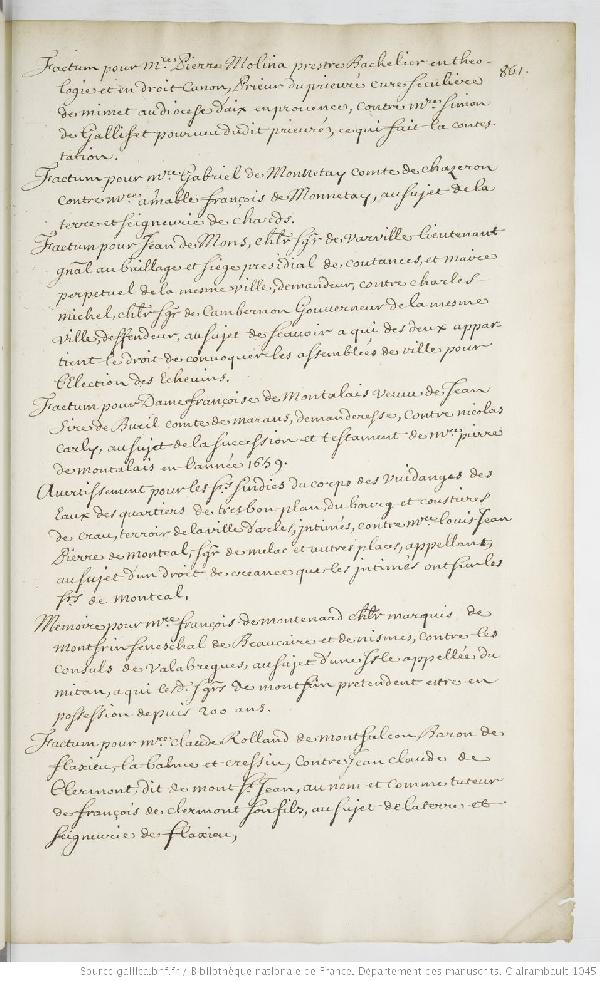 861.
Factum pour mre Pierre Molina prestre Bachelier en theo-
logie et en droit Canon, Prieur du prieuré cure seculiere
de mimet au diocese d'aix en provence, contre mre simon
de Galliffet pourvu dudit prieuré, ce qui fait la contes
tation.
Factum pour mre Gabriel de Monnetay comte de chazeron
contre mre amable françois de Monnetay, au sujet de la
terre et seigneurie de chards.
Factum pour Jean de Mons, chlr sgr de Varville lieutenant
gnal au baillage et siege presidial de coutances, et maire
perpetuel de la mesme ville, demandeur, contre charles
michel, chlr sgr de Cambernon Gouverneur de la mesme
ville, deffendeur, au sujet de scavoir a qui des deux appar-
tient le droit de convoquer les assemblées de ville pour
l'Election des Echevins.
Factum pour Dame françoise de Montalais veuve de Jean
Sire de Bueil comte de marans, demanderesse, contre nicolas
Carly, au sujet de la succession et testament de mre pierre
de montalais en l'année 1659.
Avertissement pour les srs sindics du corps des Vuidanges des
Eaux des quartiers de tresbon, plan du bourg et coustieres
de crau, terroir de la ville d'arles, intimés, contre mre louis Jean
Pierre de montcal, sgr de melac et autres places, appellant,
au sujet d'un droit de creance que les intimés ont sur les
srs de montcal.
Memoire pour mre françois de montenard chlr marquis de
montfrin seneschal de Beaucaire et de nismes, contre les
consuls de Valabregues, au sujet d'une isle appellée du
mitan, a qui les d. sgrs de montfrin pretendent estre en
possession depuis 200 ans.
Factum pour mre claude Rolland de montfalcon Baron de
flaxieu, la balme et cressin, contre Jean claude de
Clermont, dit de mont St Jean, au nom et comme tuteur
de françois de clermont son filz, au sujet de la terre et
seigneurie de flaxieu,
Source gallica.bnf.fr / Bibliothèque nationale de France. Département des manuscrits. Clairambault 1045